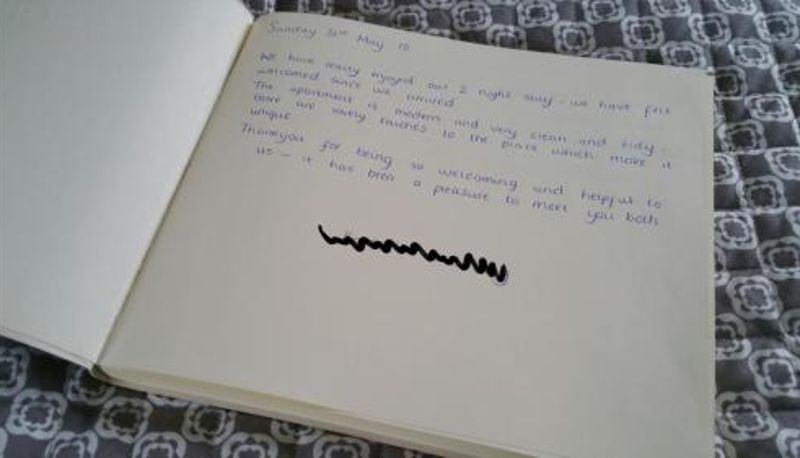 Sunday 31st May 15
We have really enjoyed our 2 night stay - we have felt
welcomed since we arrived.
The apartment is modern and very clean and tidy -
there are lovely touches to the place which make it
unique
Thankyou for being so welcoming and helpful to
us - it has been a pleasure to meet you both